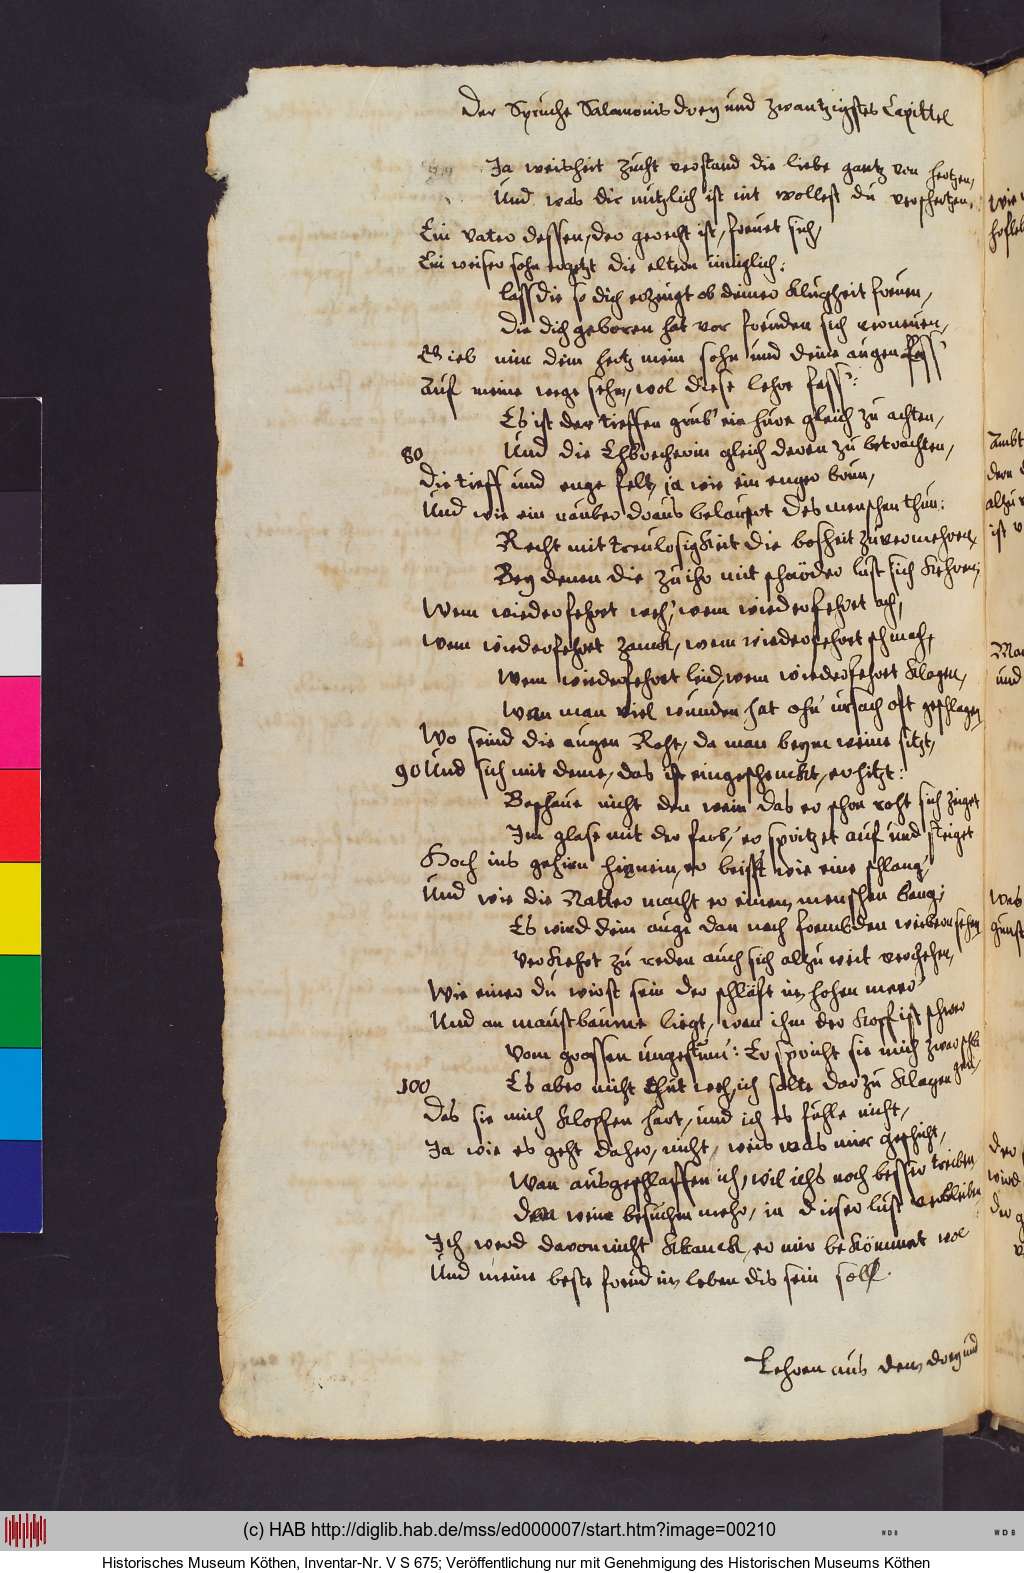 Der Spruche Salamonis drey und zwantzigstes Capittel
Ja weisheit zucht verstand die liebe gantz von hertzen,
Und was dir nutzlich ist nit wollest du verschertzen,
Ein vater dessen, der gerecht ist, freuet sich,
Ein weiser sohn ergetzt die eltern inniglich:
lass die so dich erzeugt ob deiner Klugheit freuen,
die dich geboren hat vor freuden sich verneuen,
Gieb mir dein hertz mein sohn und deine augen lass
Auf meine wege sehn, wol diese lehre fass:
Es ist der tieffen grub' ein hure gleich zu achten,
80
Und die Ehbrecherin gleich deren zu betrachten,
die tieff und enge felt, ja wie ein enger brun,
Und wie ein rauber draus belaurt des menschen thun:
Recht mit treulosigkeit die bosheit zuvermehren,
Bey denen die zu ihr mit schnöder lust sich kehren;
Wem wiederfehret weh, wem wiederfehret ach,
Wem wiederfehret zanck, wem wiederfehret schmach,
Wem wiederfehret leid, wem wiederfehret klagen,
Wem man viel wunden hat ohn' ursach oft geschlagen
Wo seind die augen Roht, da man beym weine sitzt,
90 Und sich mit deme, das ist eingeschenckt, erhitzt:
Beschaue nicht den wein das er schon roht sich zeiget
Im glase mit der farb', er spritzet auf und steiget
Hoch ins gehirn hinein, er beisst wie eine schlang'
Und wie die Natter macht er einem menschen bang;
Es wird dein auge dan nach frembden weibern sehen
verkehrt zu reden auch sich alzu weit versehen,
Wie einer du wirst sein der schläft im hohen meer
Und an mastbaume liegt, wen ihm der Kopf ist schwer
Vom grossen ungestum: Er spricht sie mich zwar schla
gen,
100
Es aber nicht thut weh, ich solte darzu klagen
Das sie mich klopfen hart, und ich es fuhle nicht,
Ja wie es geht daher, nicht, weis was mir geschicht,
Wan ausgeschlaffen ich, wil ichs noch besser treiben
Den wein besuchen mehr, in dieser lust verbleiben
Ich werd davon nicht kranck, er mir bekömmet wol
Und meine beste freud im leben dis sein soll.
Lehren aus dem drey und
(c) HAB http://diglib.hab.de/mss/ed000007/start.htm?image=00210
WDB
WDB
Historisches Museum Köthen, Inventar-Nr. V S 675; Veröffentlichung nur mit Genehmigung des Historischen Museums Köthen